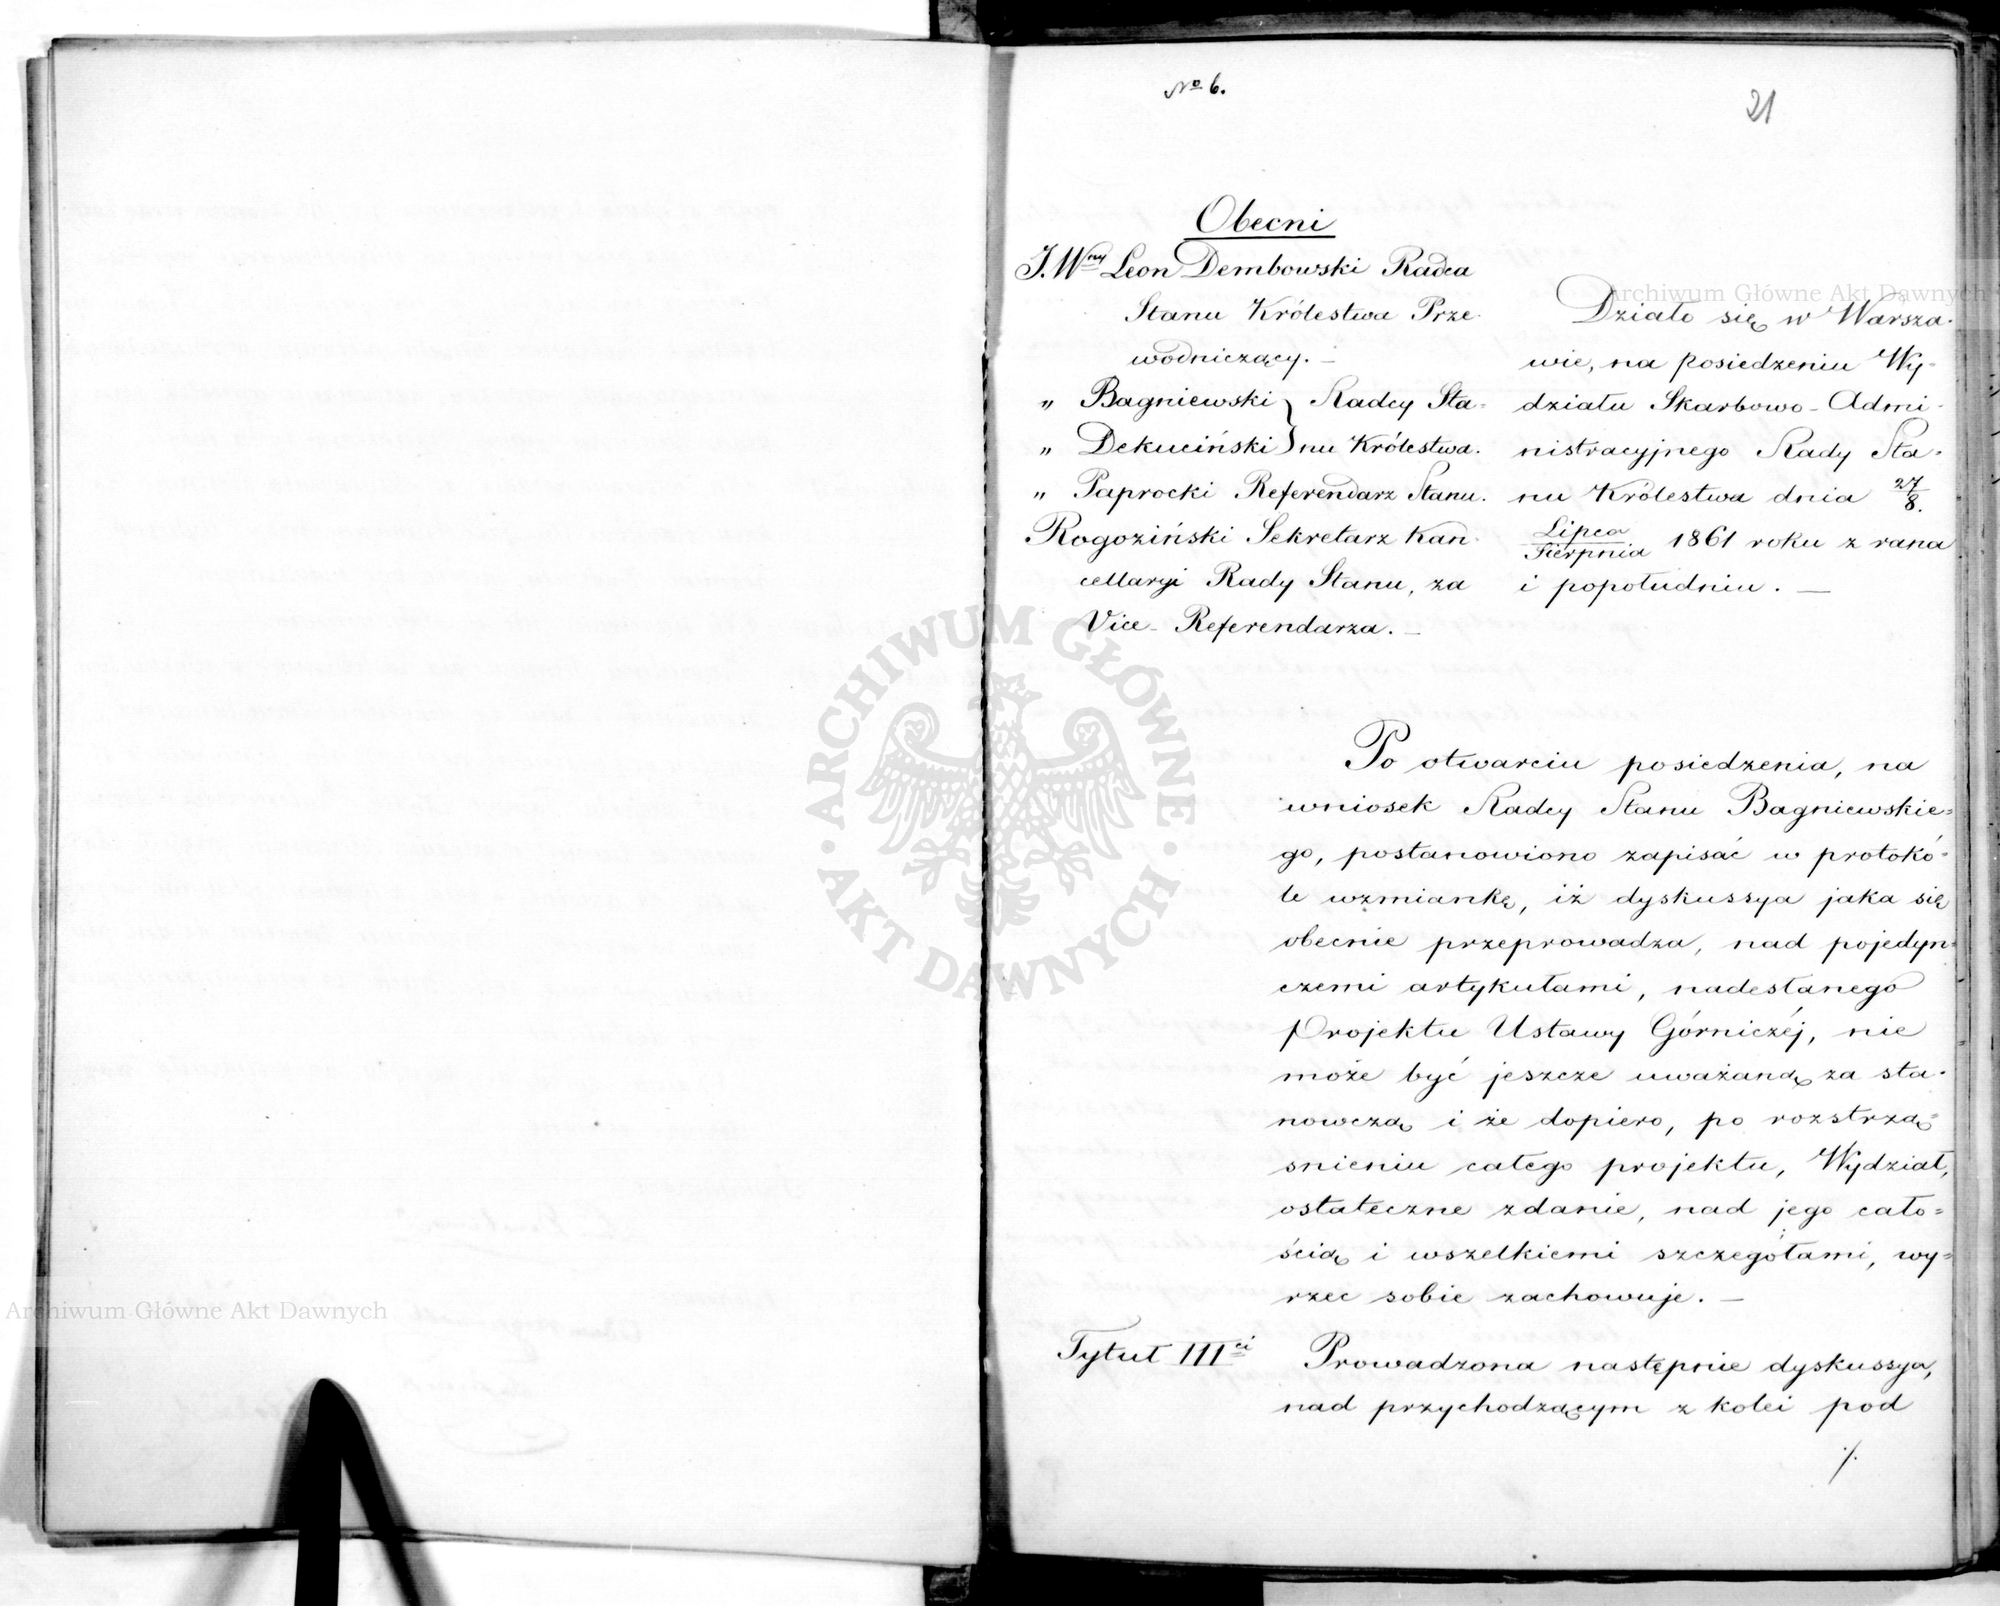 № 6.
21
Obecni
J.Wny Leon Dembowski Radca
Stanu Królestwa Prze-
wodniczący. –
„ Bagniewski } Radcy Sta-
„ Dekuciński } nu Królestwa.
„ Paprocki Referendarz Stanu.
Rogoziński Sekretarz Kan-
cellaryi Rady Stanu, za
Vice-Referendarza. –
Działo się w Warsza-
wie, na posiedzeniu Wy-
działu Skarbowo-Admi-
nistracyjnego Rady Sta-
nu Królestwa dnia 27/8.
Lipca/Sierpnia 1861 roku z rana
i popołudniu. –
Po otwarciu posiedzenia, na
wniosek Radcy Stanu Bagniewskie-
go, postanowiono zapisać w protokó-
le wzmiankę, iż dyskussya jaka się
obecnie przeprowadza, nad pojedyn-
czemi artykułami, nadesłanego
Projektu Ustawy Górniczéj, nie
może być jeszcze uważaną za sta-
nowczą i że dopiero, po rozstrzą-
śnieniu całego projektu, Wydział,
ostateczne zdanie, nad jego cało-
ścią i wszelkiemi szczegółami, wy-
rzec sobie zachowuje. –
Tytuł IIIci Prowadzona następnie dyskussya,
nad przychodzącym z kolei pod
./.
Archiwum Główne Akt Dawnych
Archiwum Główne Akt Dawnych
ARCHIWUM GŁÓWNE
AKT DAWNYCH